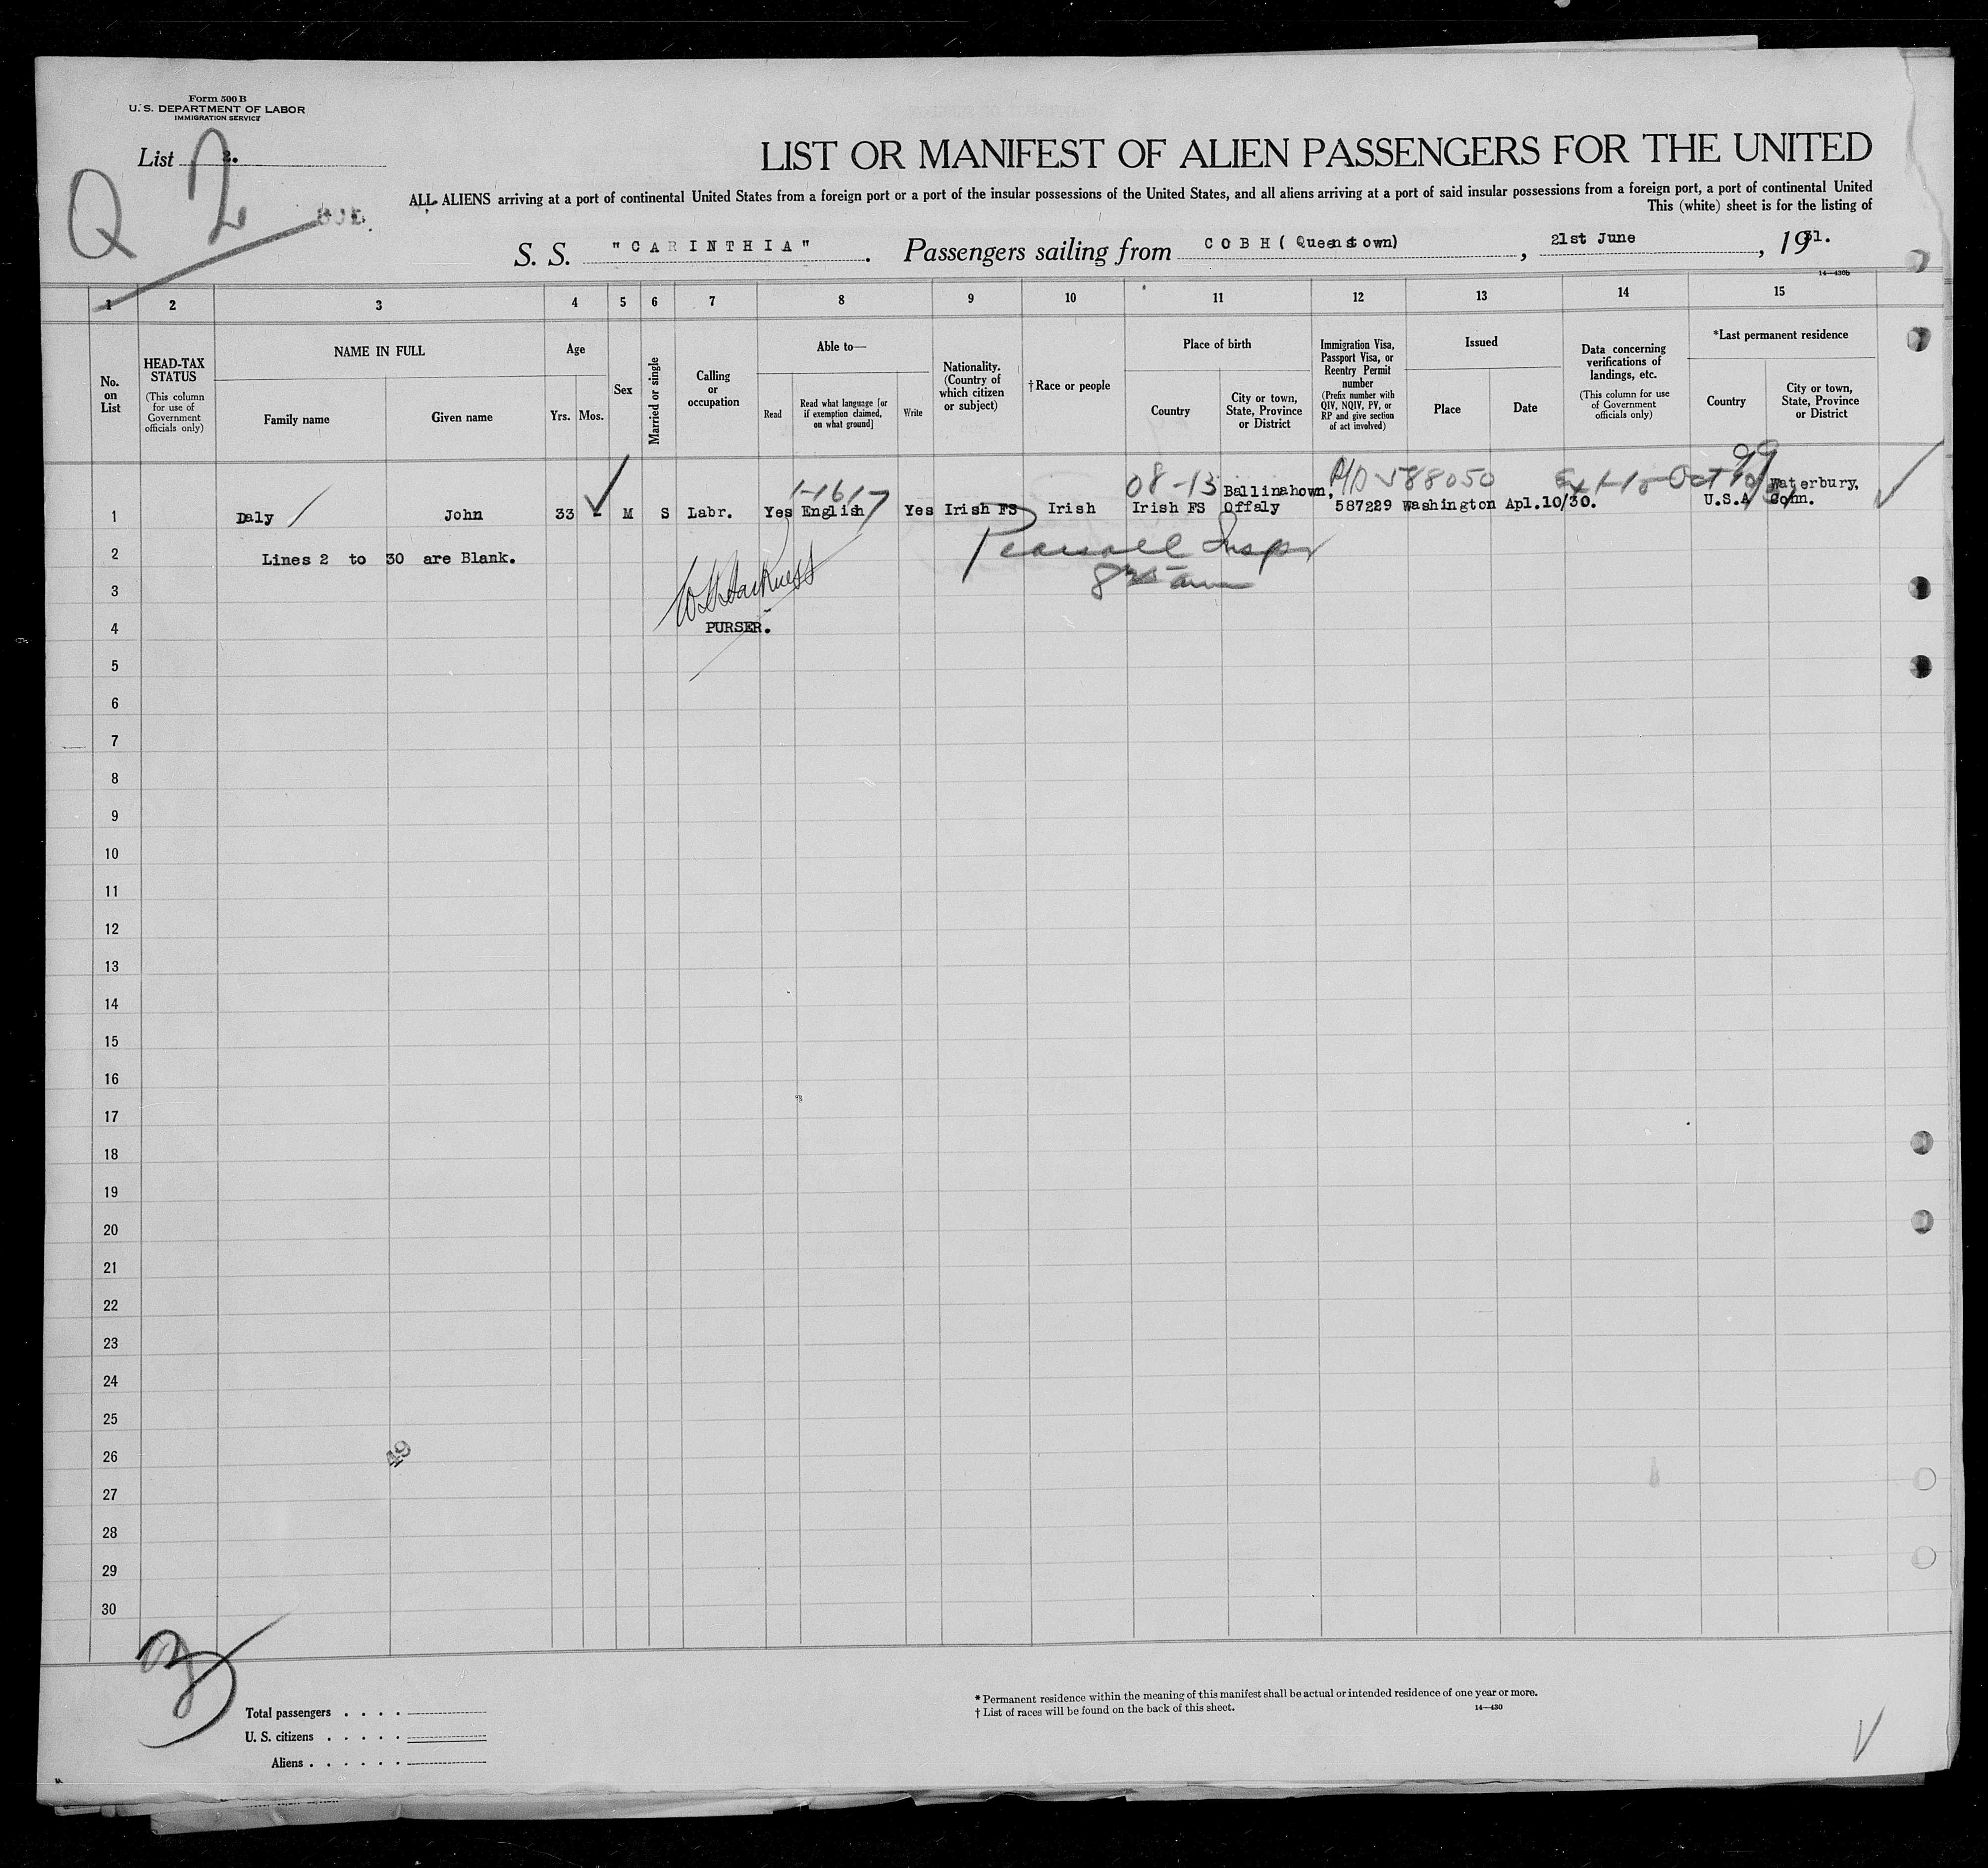 Form 500 B
U. S. DEPARTMENT OF LABOR
IMMIGRATION SERVICE
List 2.
Q 2
LIST OR MANIFEST OF ALIEN PASSENGERS FOR THE UNITED
ALL ALIENS arriving at a port of continental United States from a foreign port or a port of the insular possessions of the United States, and all aliens arriving at a port of said insular possessions from a foreign port, a port of continental United
This (white) sheet is for the listing of
S. S. "CARINTHIA". Passengers sailing from COBH (Queenstown), 21st June, 1931.
14—430b
1 2 3 4 5 6 7 8 9 10 11 12 13 14 15
No. on List
HEAD-TAX STATUS
(This column for use of Government officials only)
NAME IN FULL
Family name
Given name
Age
Yrs. Mos.
Sex
Married or single
Calling or occupation
Able to—
Read
Read what language [or if exemption claimed, on what ground]
Write
Nationality. (Country of which citizen or subject)
†Race or people
Place of birth
Country
City or town, State, Province or District
Immigration Visa, Passport Visa, or Reentry Permit number
(Prefix number with QIV, NQIV, PV, or RP and give section of act involved)
Issued
Place
Date
Data concerning verifications of landings, etc.
(This column for use of Government officials only)
*Last permanent residence
Country
City or town, State, Province or District
1-1617 08-13 588050 99
1 Daly John 33 - M S Labr. Yes English Yes Irish FS Irish Irish FS Ballinahown, Offaly 587229 Washington Apl.10/30. U.S.A Waterbury, Conn.
2 Lines 2 to 30 are Blank.
Inspr
3
4 PURSER.
5
6
7
8
9
10
11
12
13
14
15
16
17
18
19
20
21
22
23
24
25
26
49
27
28
29
30
Total passengers . . . .
U. S. citizens . . . . .
Aliens . . . . . .
* Permanent residence within the meaning of this manifest shall be actual or intended residence of one year or more.
† List of races will be found on the back of this sheet.
14—430